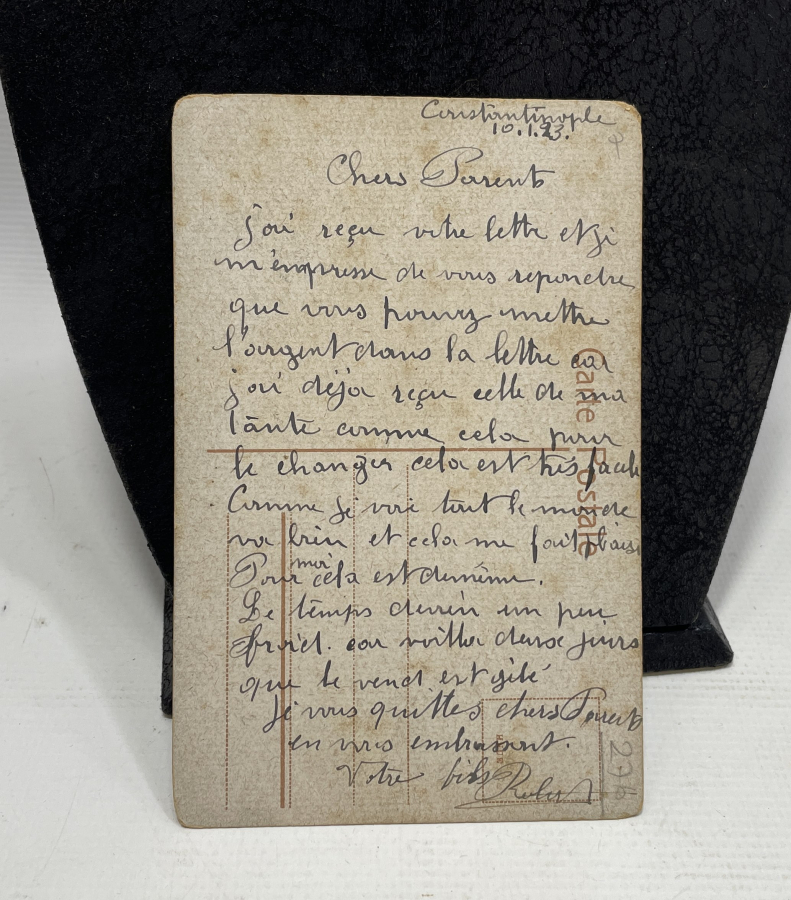 Constantinople
10.1.23.
Chers Parents
j'ai reçu votre lettre et je
m'empresse de vous repondre
que vous pouvez mettre
l'argent dans la lettre car
j'ai déja reçu celle de ma
tante comme cela pour
le changer cela est très facile
Comme je voie tout le monde
va bien et cela me fait plaisi
Pour moi cela est de même.
Le temps devien un peu
froid. car voilla deux jours
que le vend est
Je vous quittes chers Parents
en vous embrassant.
Votre fils Robert
Carte Postale